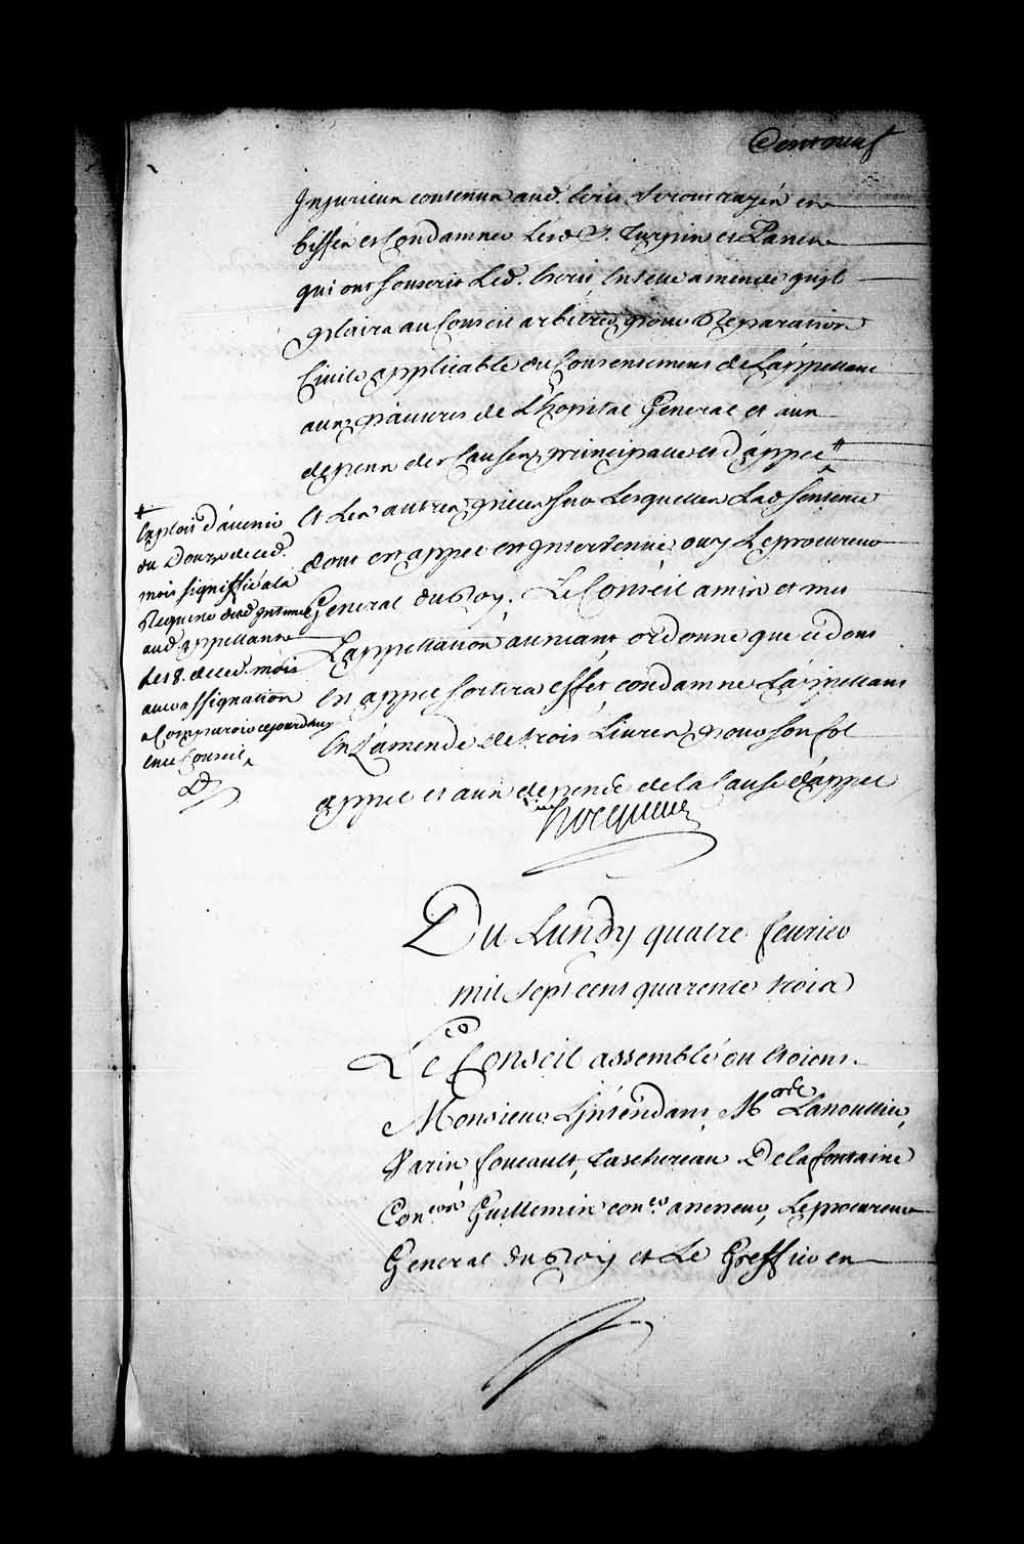 Injurieux contenus aud. Ecrit seront rayés et
biffés et Condamner Lesd. Srs. Turpin et Panet
qui ont souscrit Led. Ecrit En telle amende quil
plaira au Conseil arbitrer pour Reparation
Civile applicable du Consentement de L'appellant
aux pauvres de L'hopital General et aux
depens des Causes principalle et d'appel #
Et Les autres pieces sur Lesquelles Lad. Sentence
dont est appel est Intervenüe, ouy Le procureur
General du Roy. Le Conseil a mis et met
L'appellation au neant, ordonne que ce dont
Est appel sortira effet, condamne L'appellant
En L'amende de trois Livres pour son fol
appel et aux depens de la Cause d'appel
hocquart
# Exploit d'avenir
du Douze de ced.
mois signiffié a la
Requeste dud. Intimé
aud. appellant
Les 8. de ced. mois
avec assignation
a Comparoir cejourdhuy
En ce Conseil
Du Lundy quatre fevrier
mil sept cent quarente trois
Le Conseil assemblé ou Etoient
Monsieur L'Intendant, Mrs Lanoullier,
Varin, foucault, Taschereau Delafontaine
Coners Guillemin coner assesseur, Le procureur
General du Roy et Le Greffier en